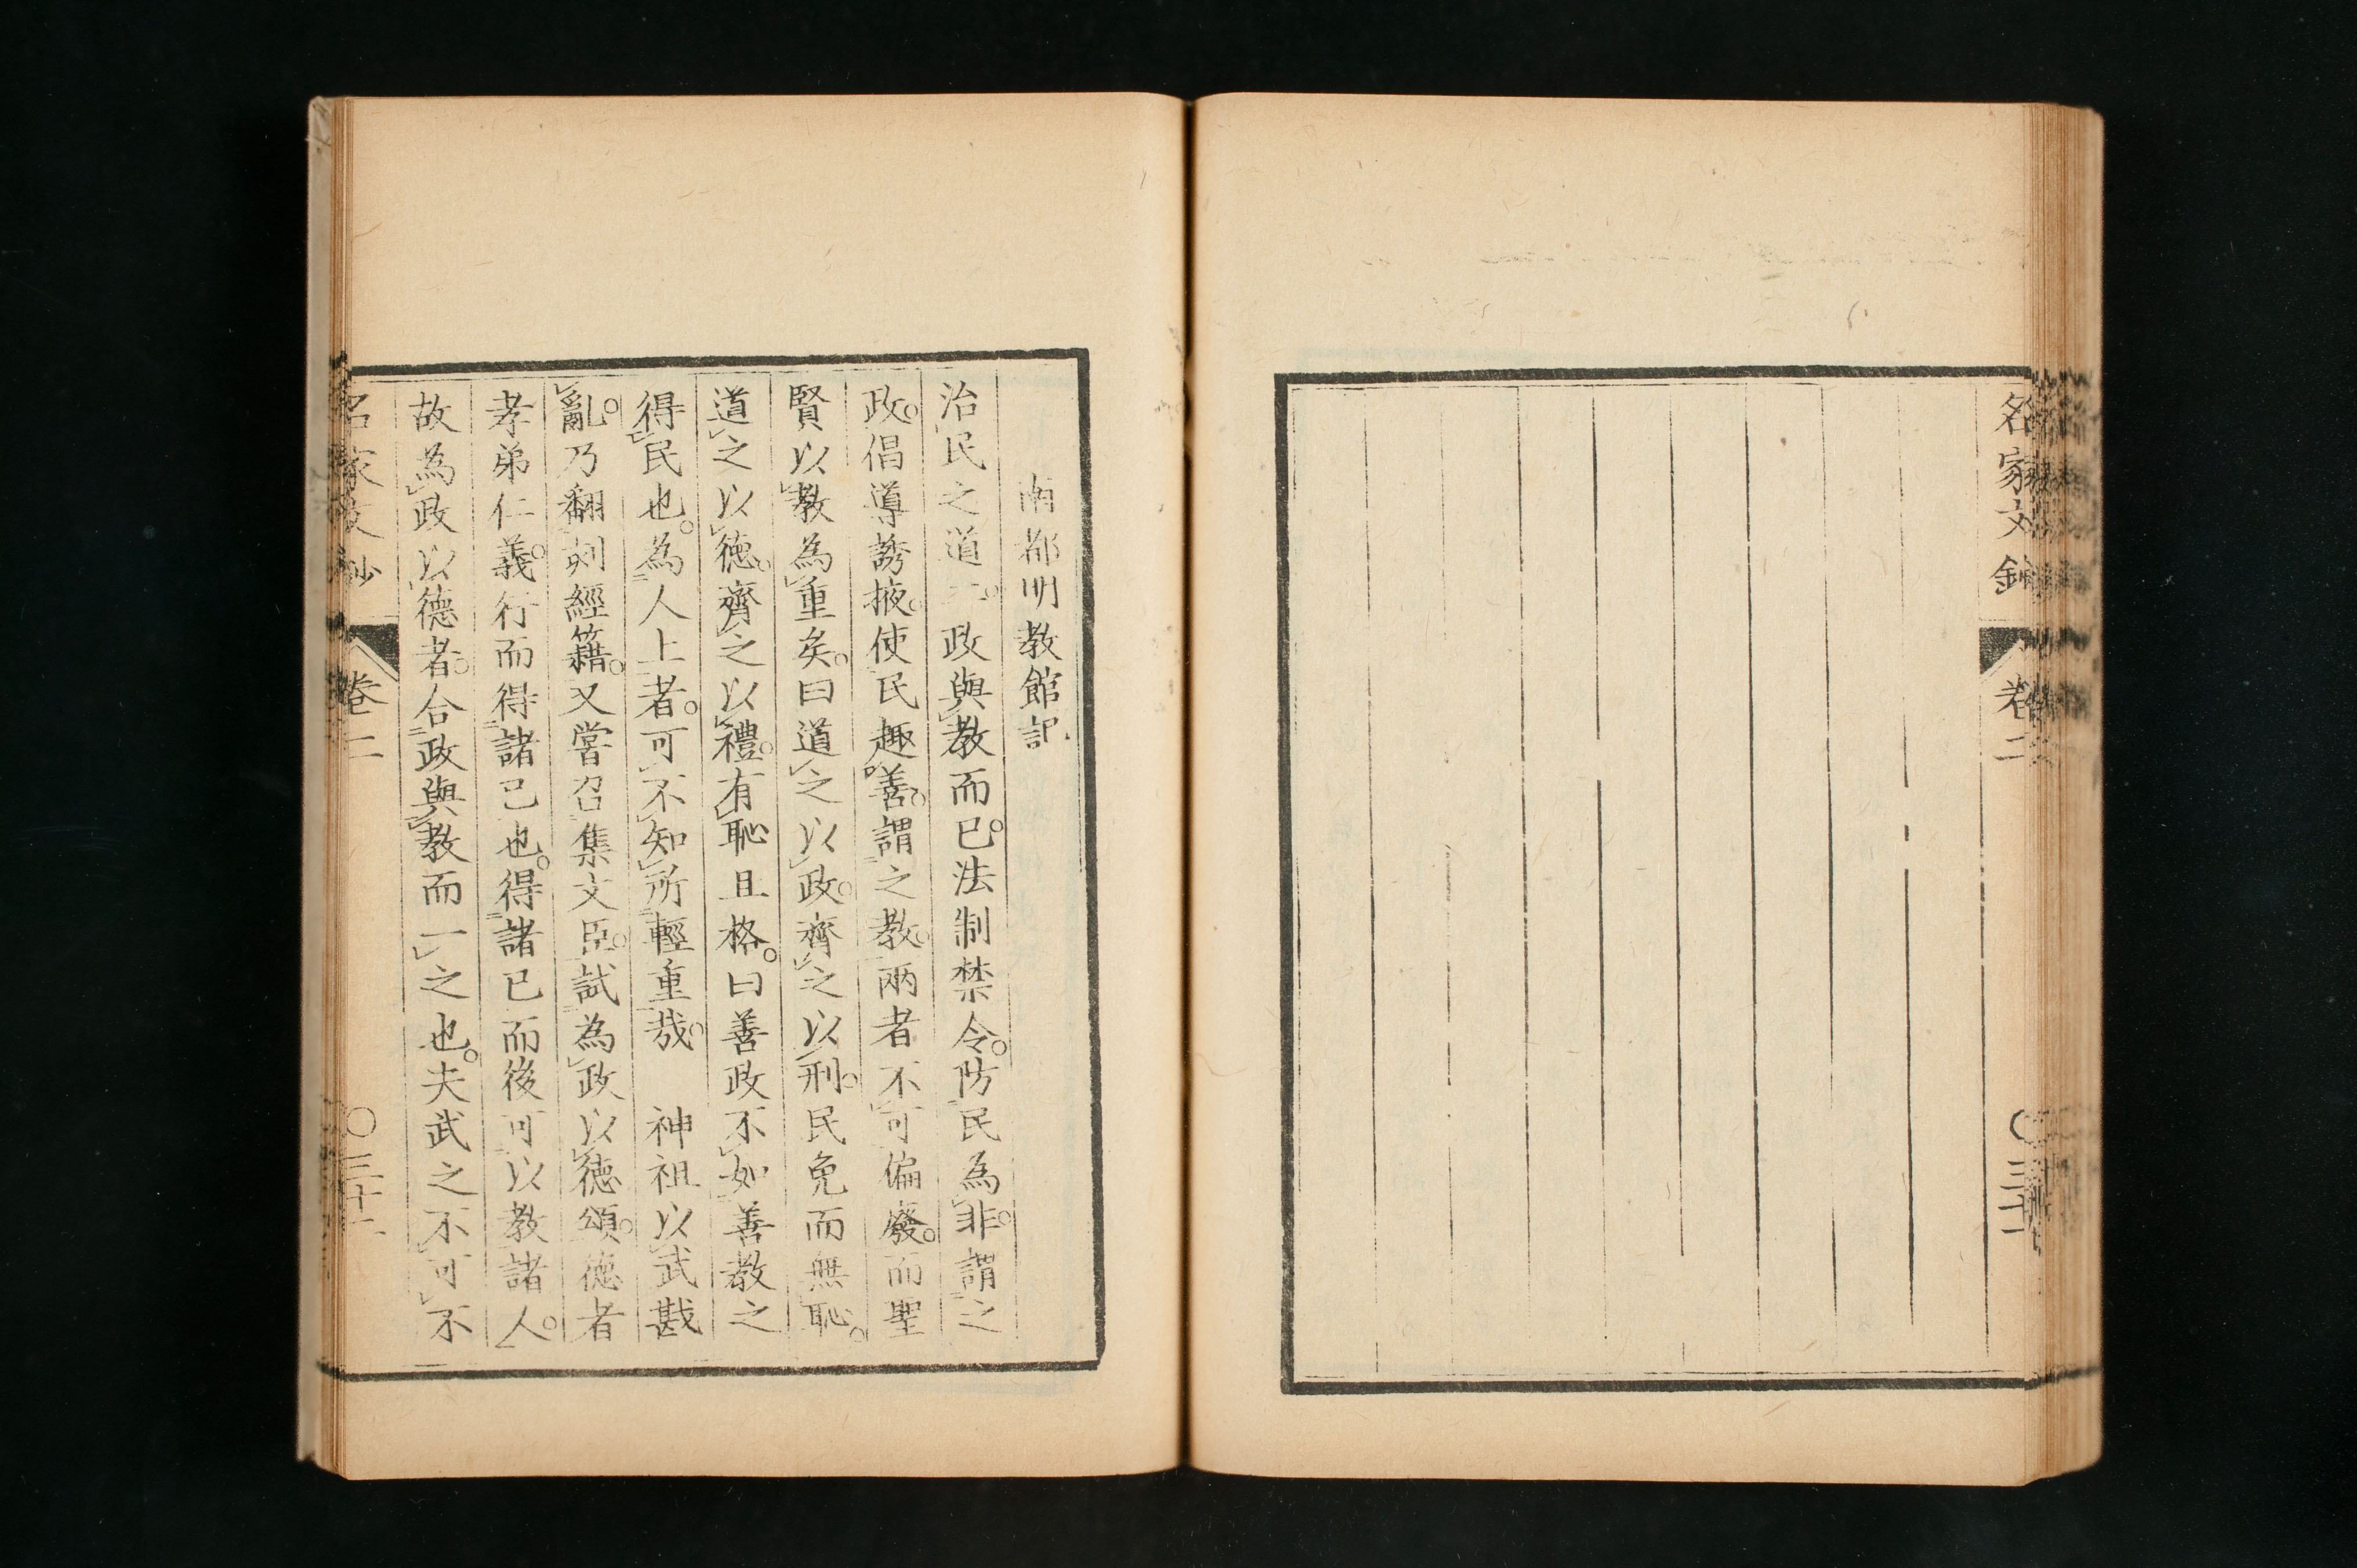 名家文鈔 卷二 〇三十一
南都明教館記
治民之道二。政與教而已。法制禁令。防民為非。謂之
政。倡導誘掖。使民趣善。謂之教。兩者不可偏廢。而聖
賢以教為重矣。曰道之以政。齊之以刑。民免而無恥。
道之以德。齊之以禮。有恥且格。曰善政不如善教之
得民也。為人上者。可不知所輕重哉。　神祖以武戡
亂。乃翻刻經籍。又嘗召集文臣。試為政以德頌。德者
孝弟仁義。行而得諸己也。得諸已而後可以教諸人。
故為政以德者。合政與教而一之也。夫武之不可不
名家文鈔 卷二